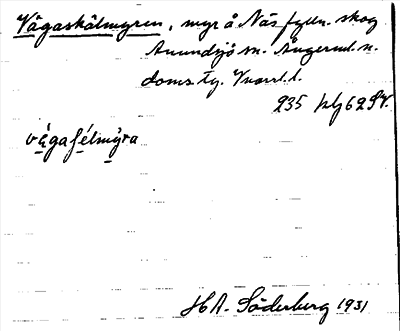 Vågaskälmyren, myr å Näs fjtn. skog
Anundsjö sn. Ångerml. n.
doms. Tg. Vnorrl. l.
235 hlj 62 SV.
vågafélmýra
H A. Söderberg 1931